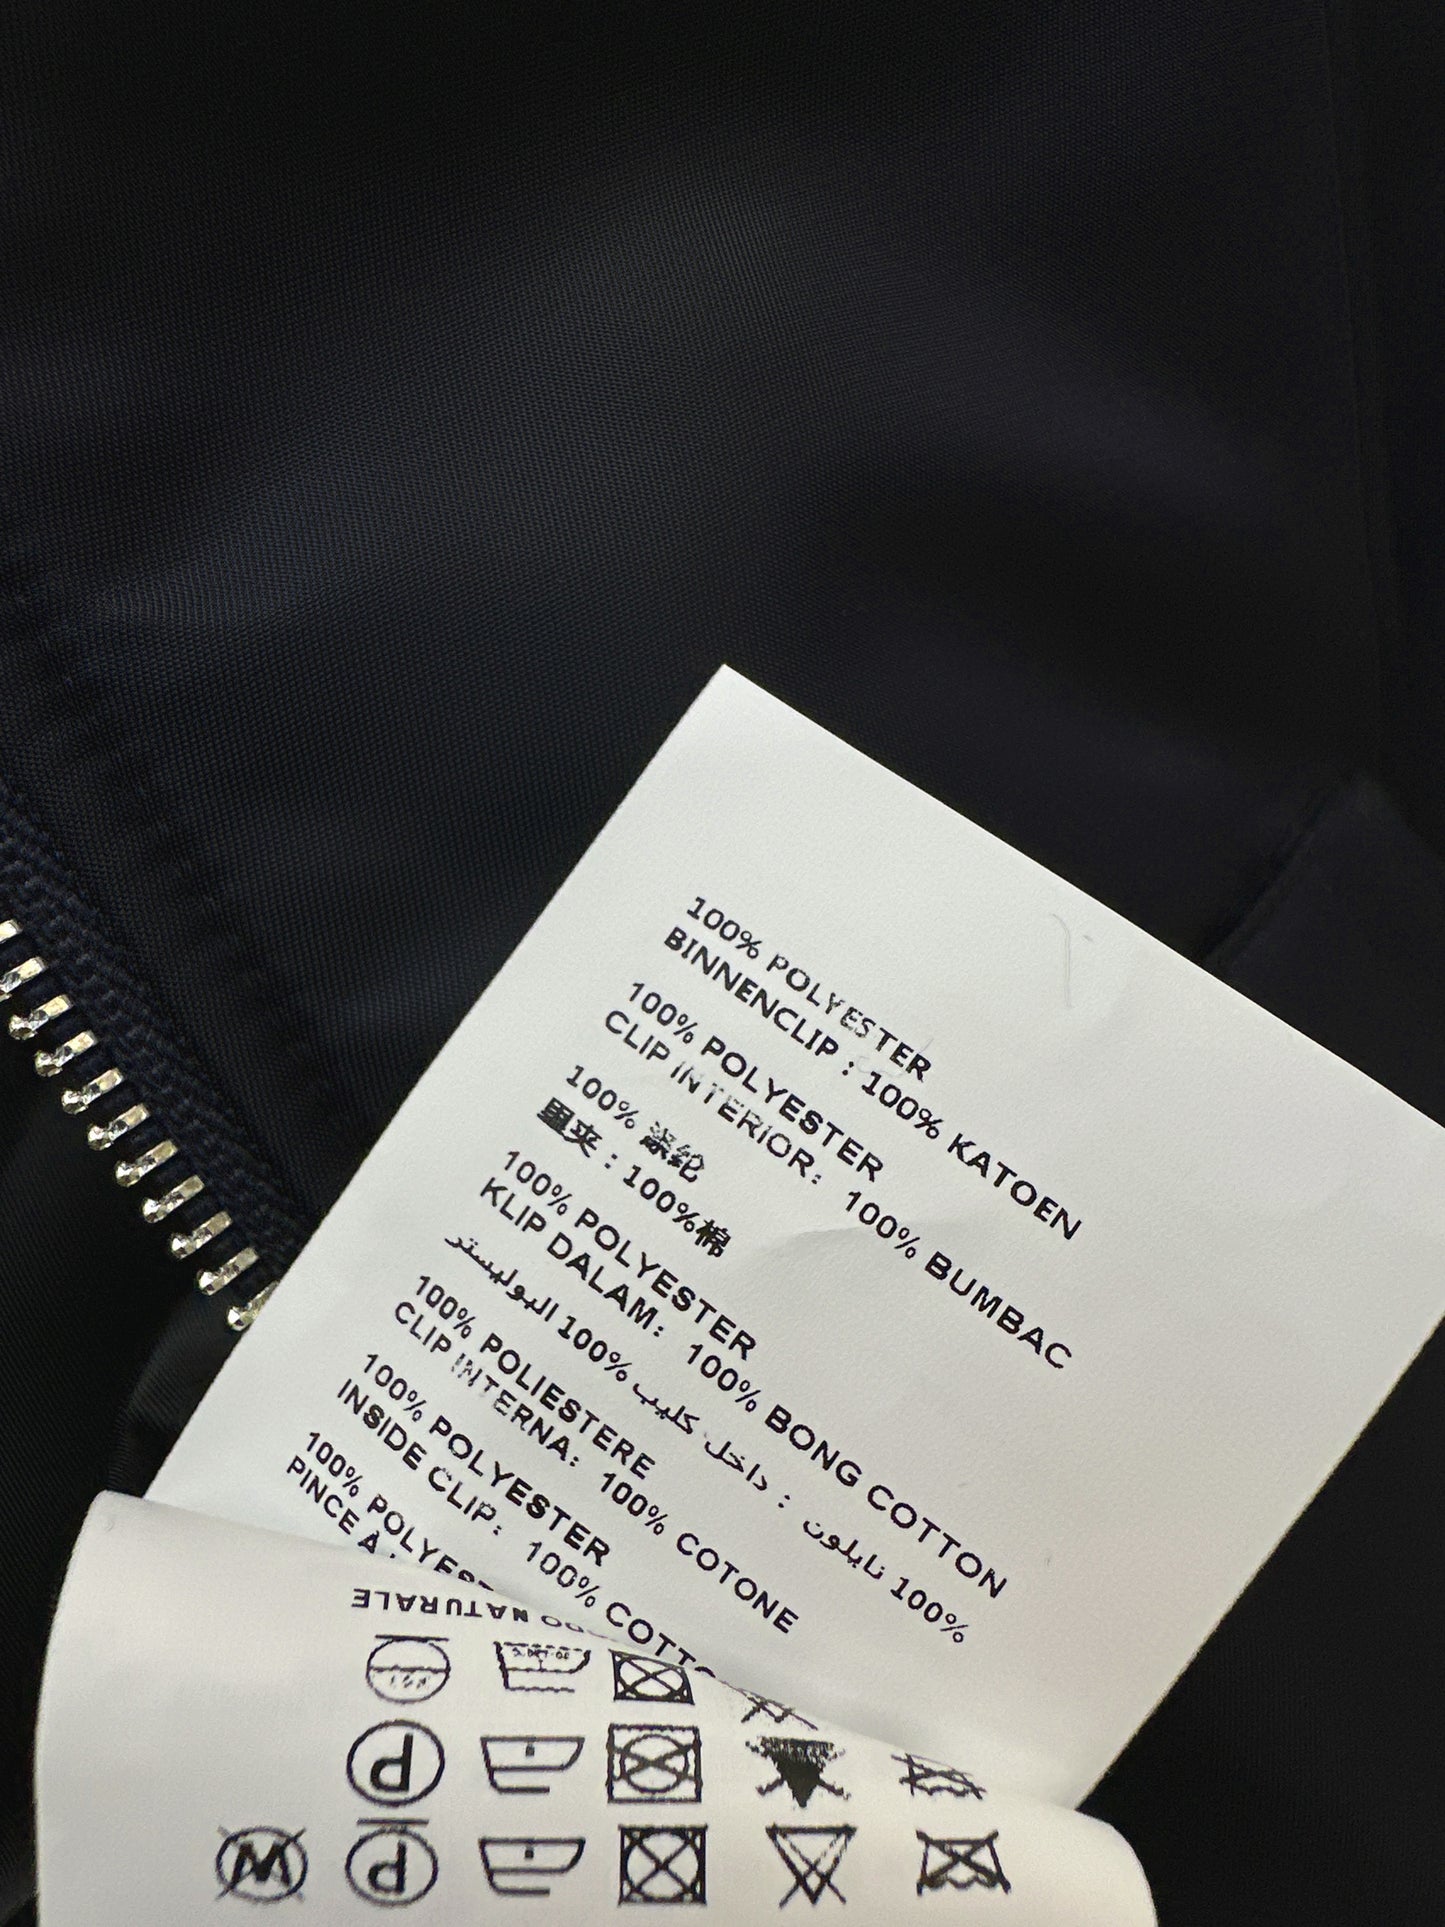 100% POLYESTER
BINNENCLIP : 100% KATOEN
100% POLYESTER
CLIP INTERIOR: 100% BUMBAC
100% 涤纶
里夹 : 100%棉
100% POLYESTER
KLIP DALAM: 100% BONG COTTON
100% نايلون : داخل كليب 100% البوليستر
100% POLIESTERE
CLIP INTERNA: 100% COTONE
100% POLYESTER
INSIDE CLIP: 100% COTTO
100% POLYEST
PINCE À
NATURALE
P
P
W